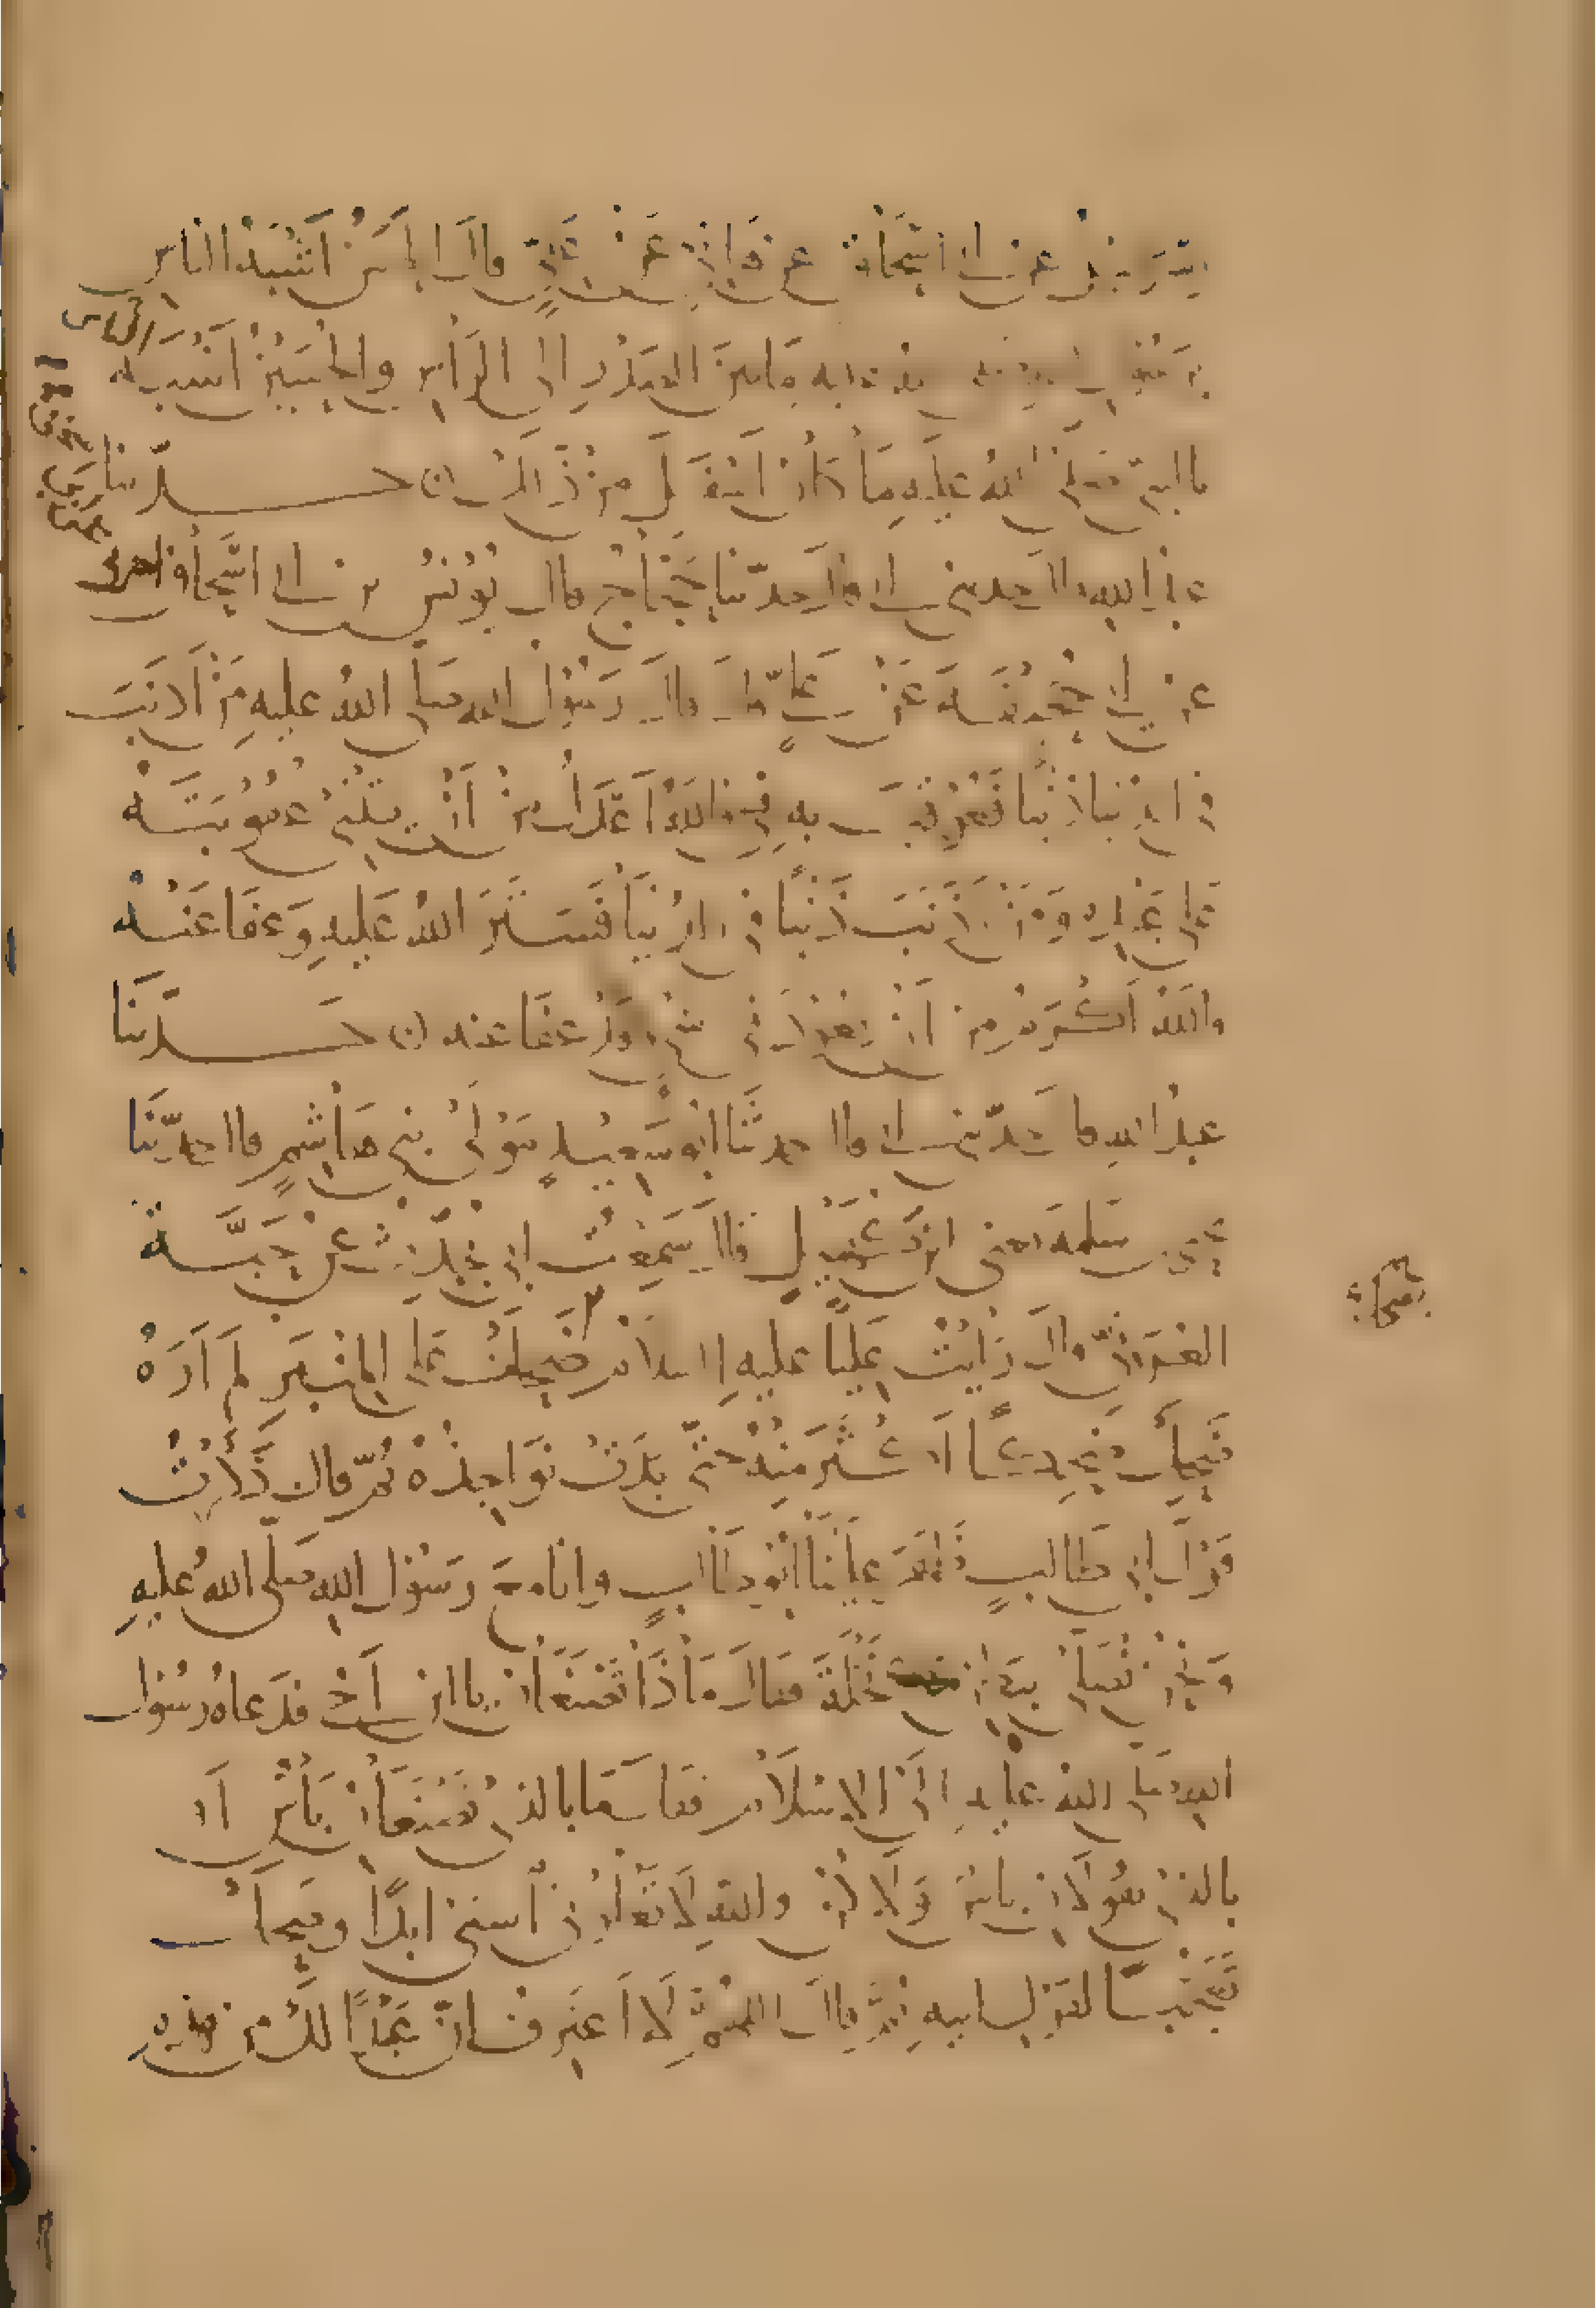 إسرائيل عن أبي إسحاق عن هانئ عن علي قال الحسن أشبه الناس
برسول الله صلى الله عليه ما بين الصدر إلى الرأس والحسين أشبه الناس
بالنبي صلى الله عليه ما كان أسفل من ذلك حدثنا
عبد الله قال حدثني أبي قال حدثنا حجاج قال يونس بن أبي إسحاق أخبرني
عن أبي جحيفة عن علي قال قال رسول الله صلى الله عليه من أذنب
في الدنيا ذنبا فعوقب به فالله أعدل من أن يثني عقوبته
على عبده ومن أذنب ذنبا في الدنيا فستر الله عليه وعفا عنه
والله أكرم من أن يعود في شيء قد عفا عنه حدثنا
عبد الله قال حدثني أبي قال حدثنا أبو سعيد مولى بني هاشم قال حدثنا
يحيى بن سلمة يعني ابن كهيل قال سمعت أبي يحدث عن حبة
العرني قال رأيت عليا عليه السلام ضحك على المنبر لم أره
ضحك ضحكا أكثر منه حتى بدت نواجذه ثم قال ذكرت
قول أبي طالب ظهر علينا أبو طالب وأنا مع رسول الله صلى الله عليه
ونحن نصلي ببطن نخلة فقال ماذا تصنعان يا ابن أخي فدعاه رسول
الله صلى الله عليه إلى الإسلام فقال ما بالذي تصنعان بأس أو
بالذي تقولان بأس ولكن والله لا تعلوني استي أبدا وضحك
تعجبا لقول أبيه ثم قال اللهم لا أعترف أن عبدا لك من هذه